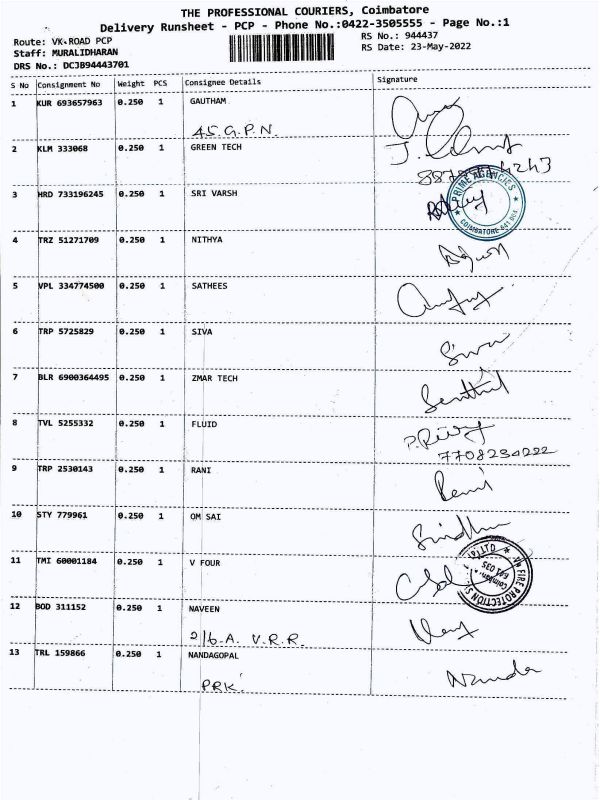 THE PROFESSIONAL COURIERS, Coimbatore
Delivery Runsheet - PCP - Phone No.:0422-3505555 - Page No.:1
Route: VK-ROAD PCP
RS No.: 944437
Staff: MURALIDHARAN
RS Date: 23-May-2022
DRS No.: DC3B94443701
S No Consignment No Weight PCS Consignee Details Signature
1 KUR 693657963 0.250 1 GAUTHAM
45.G.P.N.
2 KLM 333068 0.250 1 GREEN TECH
3 HRD 733196245 0.250 1 SRI VARSH
PRIME AGENCIES
COIMBATORE
4 TRZ 51271709 0.250 1 NITHYA
5 VPL 334774500 0.250 1 SATHEES
6 TRP 5725829 0.250 1 SIVA
Siva
7 BLR 6900364495 0.250 1 ZMAR TECH
Senthil
8 TVL 5255332 0.250 1 FLUID
7708234222
9 TRP 2530143 0.250 1 RANI
Rani
10 STY 779961 0.250 1 OM SAI
11 TMI 60001184 0.250 1 V FOUR
FIRE PROTECTION
12 BOD 311152 0.250 1 NAVEEN
2/6-A. V.R.R.
13 TRL 159866 0.250 1 NANDAGOPAL
PRK.
Nanda